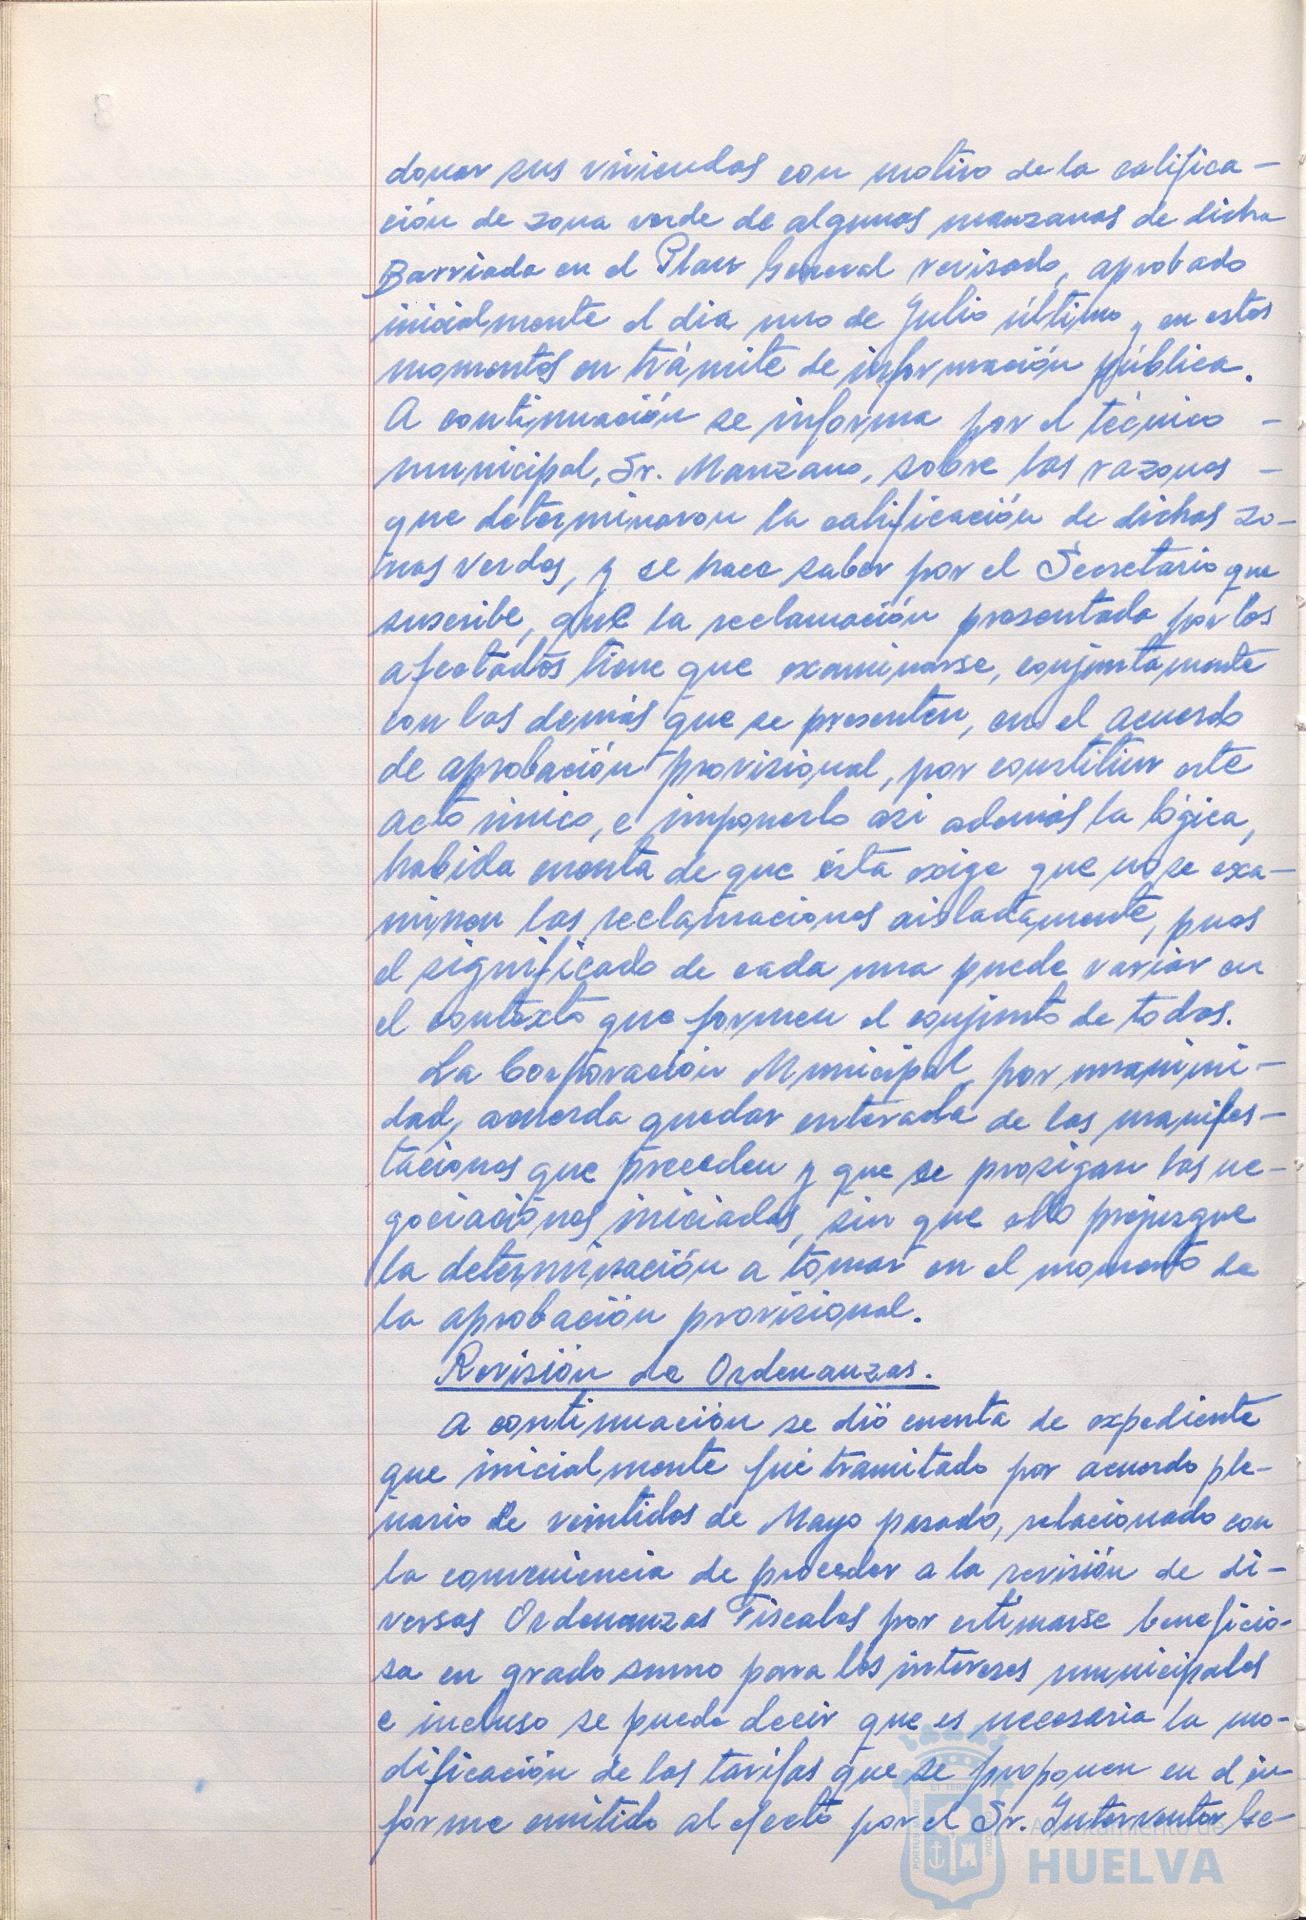 donar sus viviendas con motivo de la califica-
ción de zona verde de algunas manzanas de dicha
Barriada en el Plan General revisado, aprobado
inicialmente el dia uno de Julio último y en estos
momentos en trámite de información pública.
A continuación se informa por el técnico -
municipal, Sr. Manzano, sobre las razones -
que determinaron la calificación de dichas zo-
nas verdes, y se hace saber por el Secretario que
suscribe, que la reclamación presentada por los
afectados tiene que examinarse, conjuntamente
con las demás que se presenten, en el acuerdo
de aprobación provisional, por constituir este
acto único, e imponerlo asi además la lógica,
habida cuenta de que ésta exige que no se exa-
minen las reclamaciones aisladamente, pues
el significado de cada una puede variar en
el contexto que formen el conjunto de todas.
La Corporación Municipal, por unanimi-
dad, acuerda quedar enterada de las manifes-
taciones que preceden y que se prosigan las ne-
gociaciones iniciadas, sin que ello prejuzgue
la determinación a tomar en el momento de
la aprobación provisional.
Revisión de Ordenanzas.
A continuación se dió cuenta de expediente
que inicialmente fué tramitado por acuerdo ple-
nario de veintidos de Mayo pasado, relacionado con
la conveniencia de proceder a la revisión de di-
versas Ordenanzas Fiscales por estimarse beneficio-
sa en grado sumo para los intereses municipales
e incluso se puede decir que es necesaria la mo-
dificación de las tarifas que se proponen en el in-
forme emitido al efecto por el Sr. Interventor
Ayuntamiento de
HUELVA